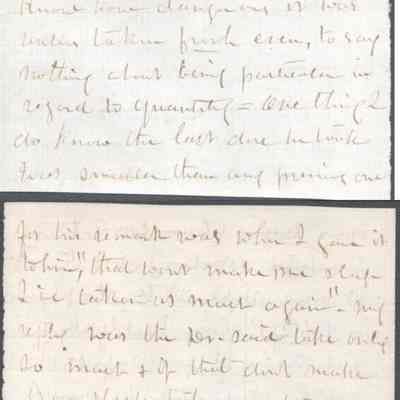 know how dangerous it was
unless taken fresh even, to say
nothing about being particular in
regard to quantity = One thing I
do know the last dose he took
was smaller than any previous one
for his remark was when I gave it
to him, "that wont make me sleep
I've taken as much again" - my
reply was the Dr. said take only
so much & if that dont make
you sleep take